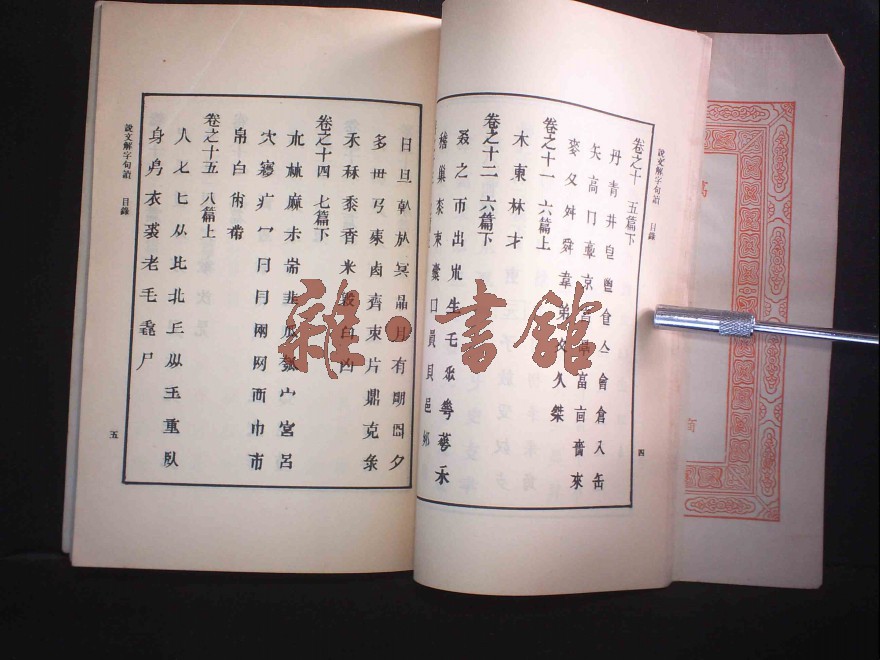 說文解字句讀 目錄
卷之十 五篇下
丹青井皀鬯食亼會倉入缶
矢高冂𩫏京亯㫗畗㐭嗇來
麥夊舛舜韋弟夂久桀
卷之十一 六篇上
木東林才
卷之十二 六篇下
叒之帀出𣎵生乇𠂹𠌶華禾
稽巢桼束㯻囗員貝邑𨛜
四
日旦倝㫃冥晶月有朙囧夕
多毌𢎘𣐺鹵齊朿片鼎克彔
禾秝黍香米毇臼凶
卷之十四 七篇下
朮𣏟麻尗耑韭瓜瓠宀宮呂
穴㝱疒冖𠔼冃㒳网襾巾巿
帛白㡀黹
卷之十五 八篇上
人𠤎匕从比北丘㐺𡈼重臥
身㐆衣裘老毛毳尸
說文解字句讀 目錄
五
雜·書館